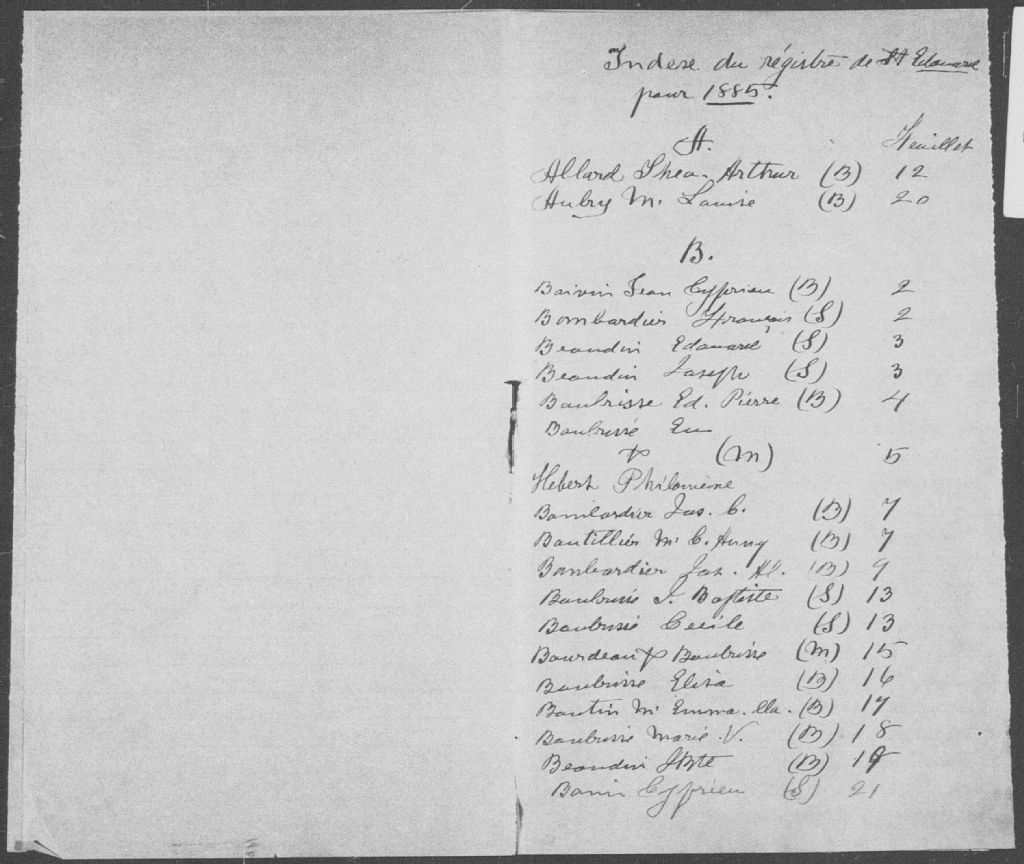 Indexe du régistre de St Edouard
pour 1885.
A.
Feuillet
Allard Theo. Arthur (B) 12
Aubry M. Louise (B) 20
B.
Boivin Jean Cyprien (B) 2
Bombardier François (S) 2
Beaudin Edouard (S) 3
Beaudin Joseph (S) 3
Boulrisse Ed. Pierre (B) 4
Boulrisse
& (M) 5
Hebert Philomène
Bombardier Jos. C. (B) 7
Boutillier M. C. (B) 7
Bombardier Jos. Al. (B) 9
Boulrisse J. Baptiste (S) 13
Boulrisse Cecile (S) 13
Bourdeau & Boulrisse (M) 15
Boulrisse Eliza (B) 16
Boutin M. Emma. (B) 17
Boulrisse Marie V. (B) 18
Beaudin JBte (B) 19
Cyprien (S) 21